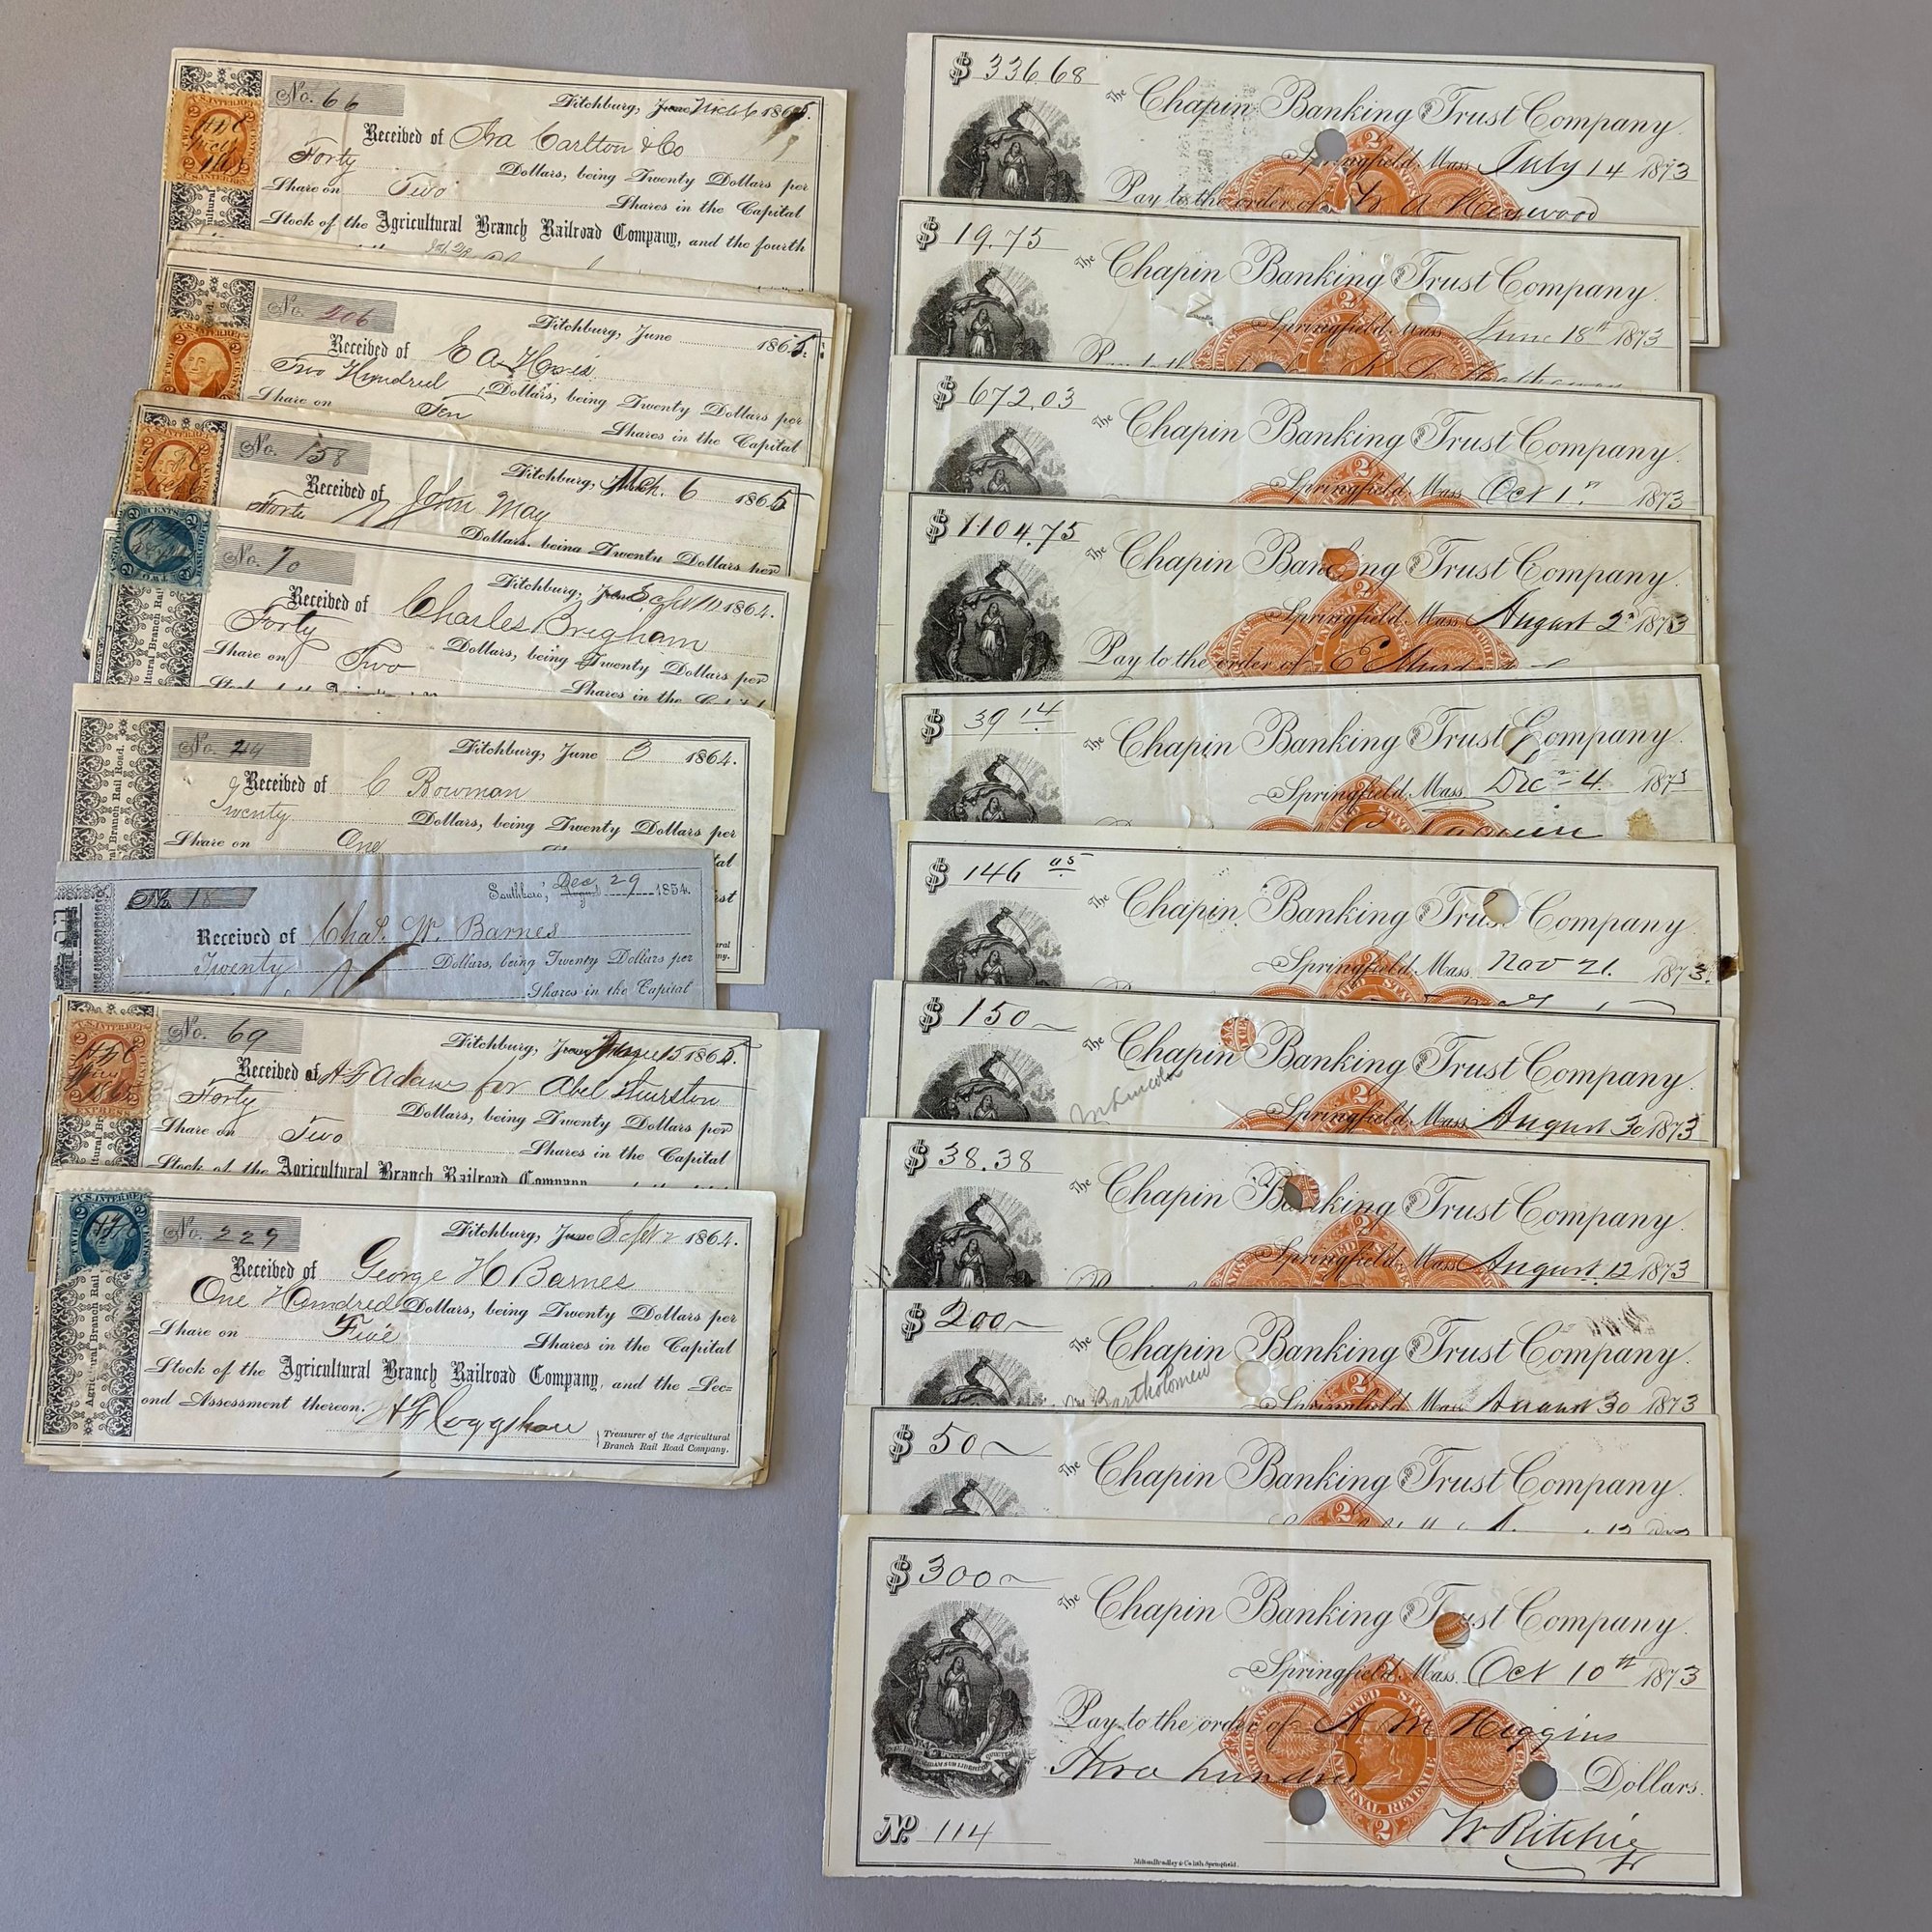 No. 66
Fitchburg, June 186
Received of Ira Carlton & Co
Forty Dollars, being Twenty Dollars per
Share on Two Shares in the Capital
Stock of the Agricultural Branch Railroad Company, and the fourth
No. 206
Fitchburg, June 1865.
Received of E A
Two Hundred Dollars, being Twenty Dollars per
Share on Ten Shares in the Capital
No. 158
Fitchburg, Mch. 6 1865
Received of John May
Forty
Dollars, being Twenty Dollars per
No. 70
Fitchburg, June Sept 10 1864.
Received of Charles Brigham
Forty Dollars, being Twenty Dollars per
Share on Two Shares in the Capital
No. 24
Fitchburg, June 3 1864.
Received of C Bowman
Twenty Dollars, being Twenty Dollars per
Share on One
No. 18
Southboro', August Dec 29 1854.
Received of Chas. W. Barnes
Twenty Dollars, being Twenty Dollars per
Shares in the Capital
No. 69
Fitchburg, June 15 1865.
Received of A F Adams for Abel Thurston
Forty Dollars, being Twenty Dollars per
Share on Two Shares in the Capital
Stock of the Agricultural Branch Railroad Company
No. 229
Fitchburg, June Sept 2 1864.
Received of George H. Barnes
One Hundred Dollars, being Twenty Dollars per
Share on Five Shares in the Capital
Stock of the Agricultural Branch Railroad Company, and the Sec=
ond Assessment thereon.
Treasurer of the Agricultural
Branch Rail Road Company.
$ 336 68
The Chapin Banking and Trust Company.
Springfield, Mass. July 14 1873
Pay to the order of W A Heywood
$ 19.75
The Chapin Banking and Trust Company.
Springfield, Mass. June 18th 1873
$ 672.03
The Chapin Banking and Trust Company.
Springfield, Mass. Oct 1st 1873
$ 1104.75
The Chapin Banking and Trust Company.
Springfield, Mass. August 2d 1873
Pay to the order of
$ 39 14
The Chapin Banking and Trust Company.
Springfield, Mass. Dec 4. 1873
$ 146 05
The Chapin Banking and Trust Company.
Springfield, Mass. Nov 21. 1873.
$ 150
The Chapin Banking and Trust Company.
Springfield, Mass. August 30 1873
$ 38.38
The Chapin Banking and Trust Company.
Springfield, Mass. August 12 1873
$ 200
The Chapin Banking and Trust Company.
Bartholomew
Springfield, Mass. August 30 1873
$ 50
The Chapin Banking and Trust Company.
$ 300
The Chapin Banking and Trust Company.
Springfield, Mass. Oct 10th 1873
Pay to the order of A M Higgins
Three hundred Dollars.
W Ritchie
No. 114
Milton Bradley & Co lith Springfield.